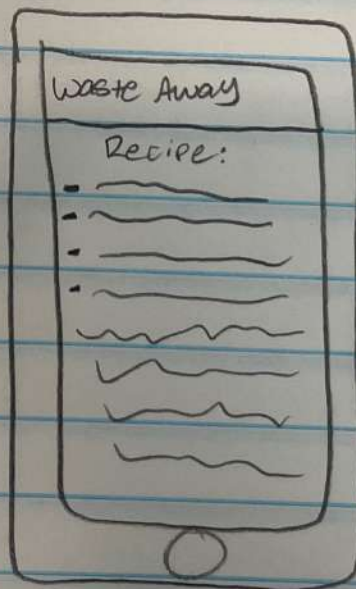 Waste Away
Recipe: